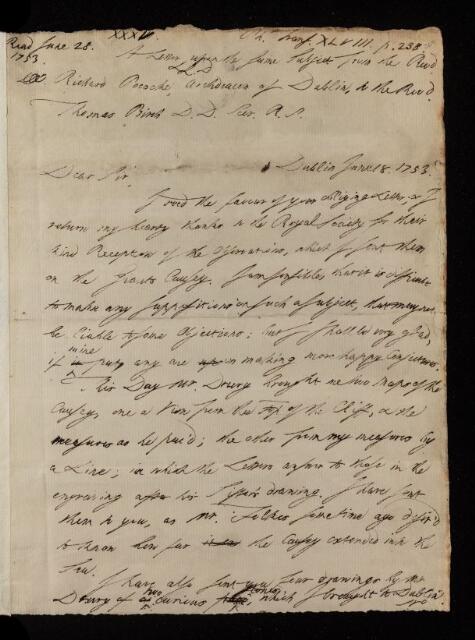 XXXV. Ph. Trans. XLVIII. p. 238
Read June 28.
1753.
A Letter upon the same Subject from the Revd.
L.L.D.
Richard Pococke, Archdeacon of Dublin, to the Revd.
Thomas Birch D.D. Secr. R.S.
Dublin June 18. 1753.
Dear Sir,
I recd the favour of your obliging Letter, & I
return my hearty thanks to the Royal Society for their
kind Reception of the Observations, which I sent them
on the Giants Causey. I am sensible, that it is difficult
to make any suppositions on such a subject, that may not
be liable to some Objections; but I shall be very glad,
mine
if any are in making more happy conjectures.
This Day Mr. Drury brought me two Maps of the
Causey, one a View from the Top of the Cliff, & the
measures as he paced; the other from my measures by
a Line; in which the Letters answer to those in the
engraving after his Sister's drawing. I have sent
them to you, as Mr. Folkes sometime ago desir'd
to know how far the Causey extended into the
Sea.
I have also sent you four drawings by Mr.
two stones
Drury of curious which I brought to Dublin